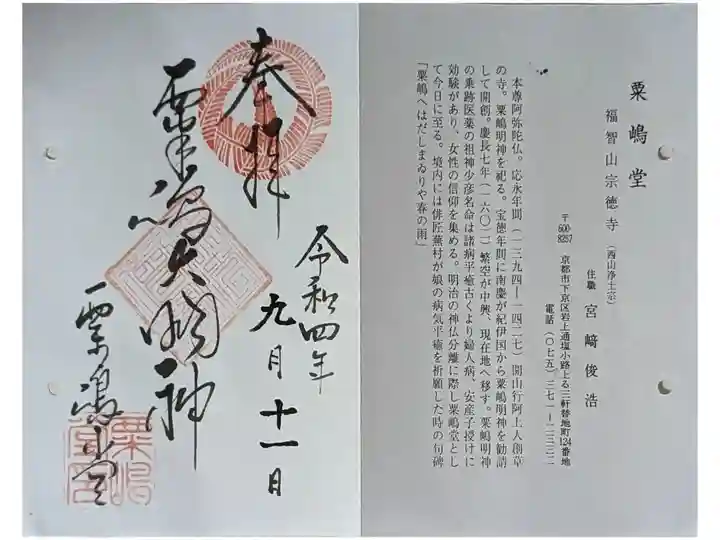 奉拝
粟嶋大明神
粟嶋堂
令和四年
九月十一日
粟嶋堂
粟嶋堂
福智山宗徳寺（西山浄土宗）
住職 宮﨑俊浩
〒600-8267 京都市下京区岩上通塩小路上る三軒替地町124番地
電話（〇七五）三七一ー二三三二
本尊阿弥陀仏。応永年間（一三九四ー一四二七）開山行阿上人創草
の寺。粟嶋明神を祀る。宝徳年間に南慶が紀伊国から粟嶋明神を勧請
して開創。慶長七年（一六〇二）繁空が中興、現在地へ移す。粟嶋明神
の乗跡医薬の祖神少彦名命は諸病平癒古くより婦人病、安産子授けに
効験があり、女性の信仰を集める。明治の神仏分離に際し粟嶋堂とし
て今日に至る。境内には俳匠蕪村が娘の病気平癒を祈願した時の句碑
「粟嶋へはだしまゐりや春の雨」